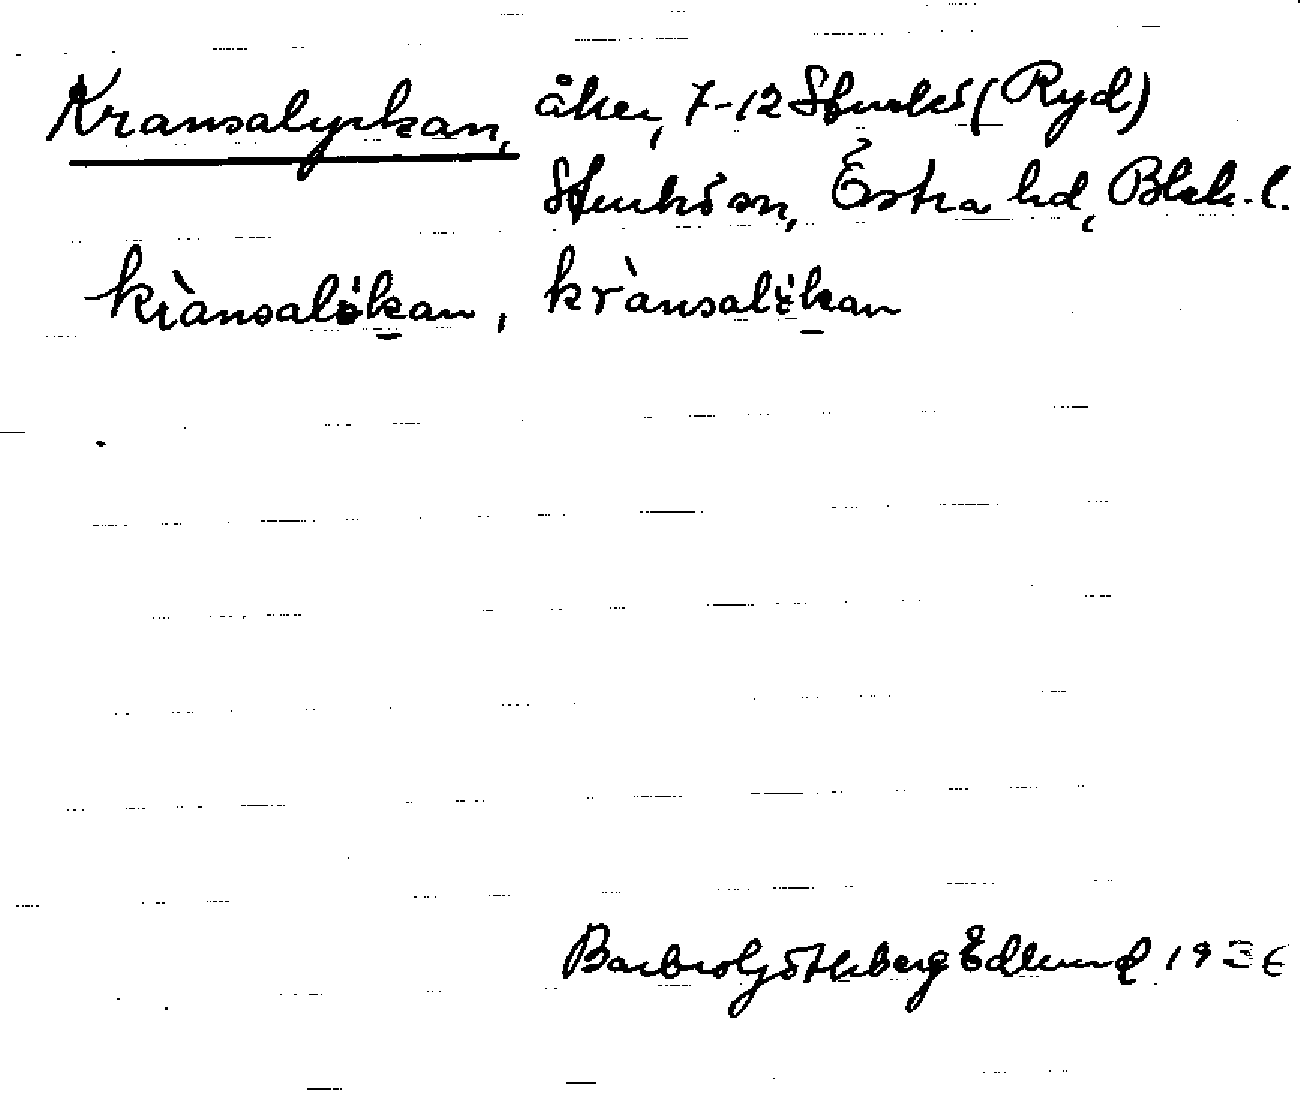 Kransalyckan, åker, 7-12 Sturkö (Ryd)
Sturkö sn, Östra hd, Blek. l.
krànsalö̀kan, krànsalö̀kan
Barbro Götheberg Edlund 1936